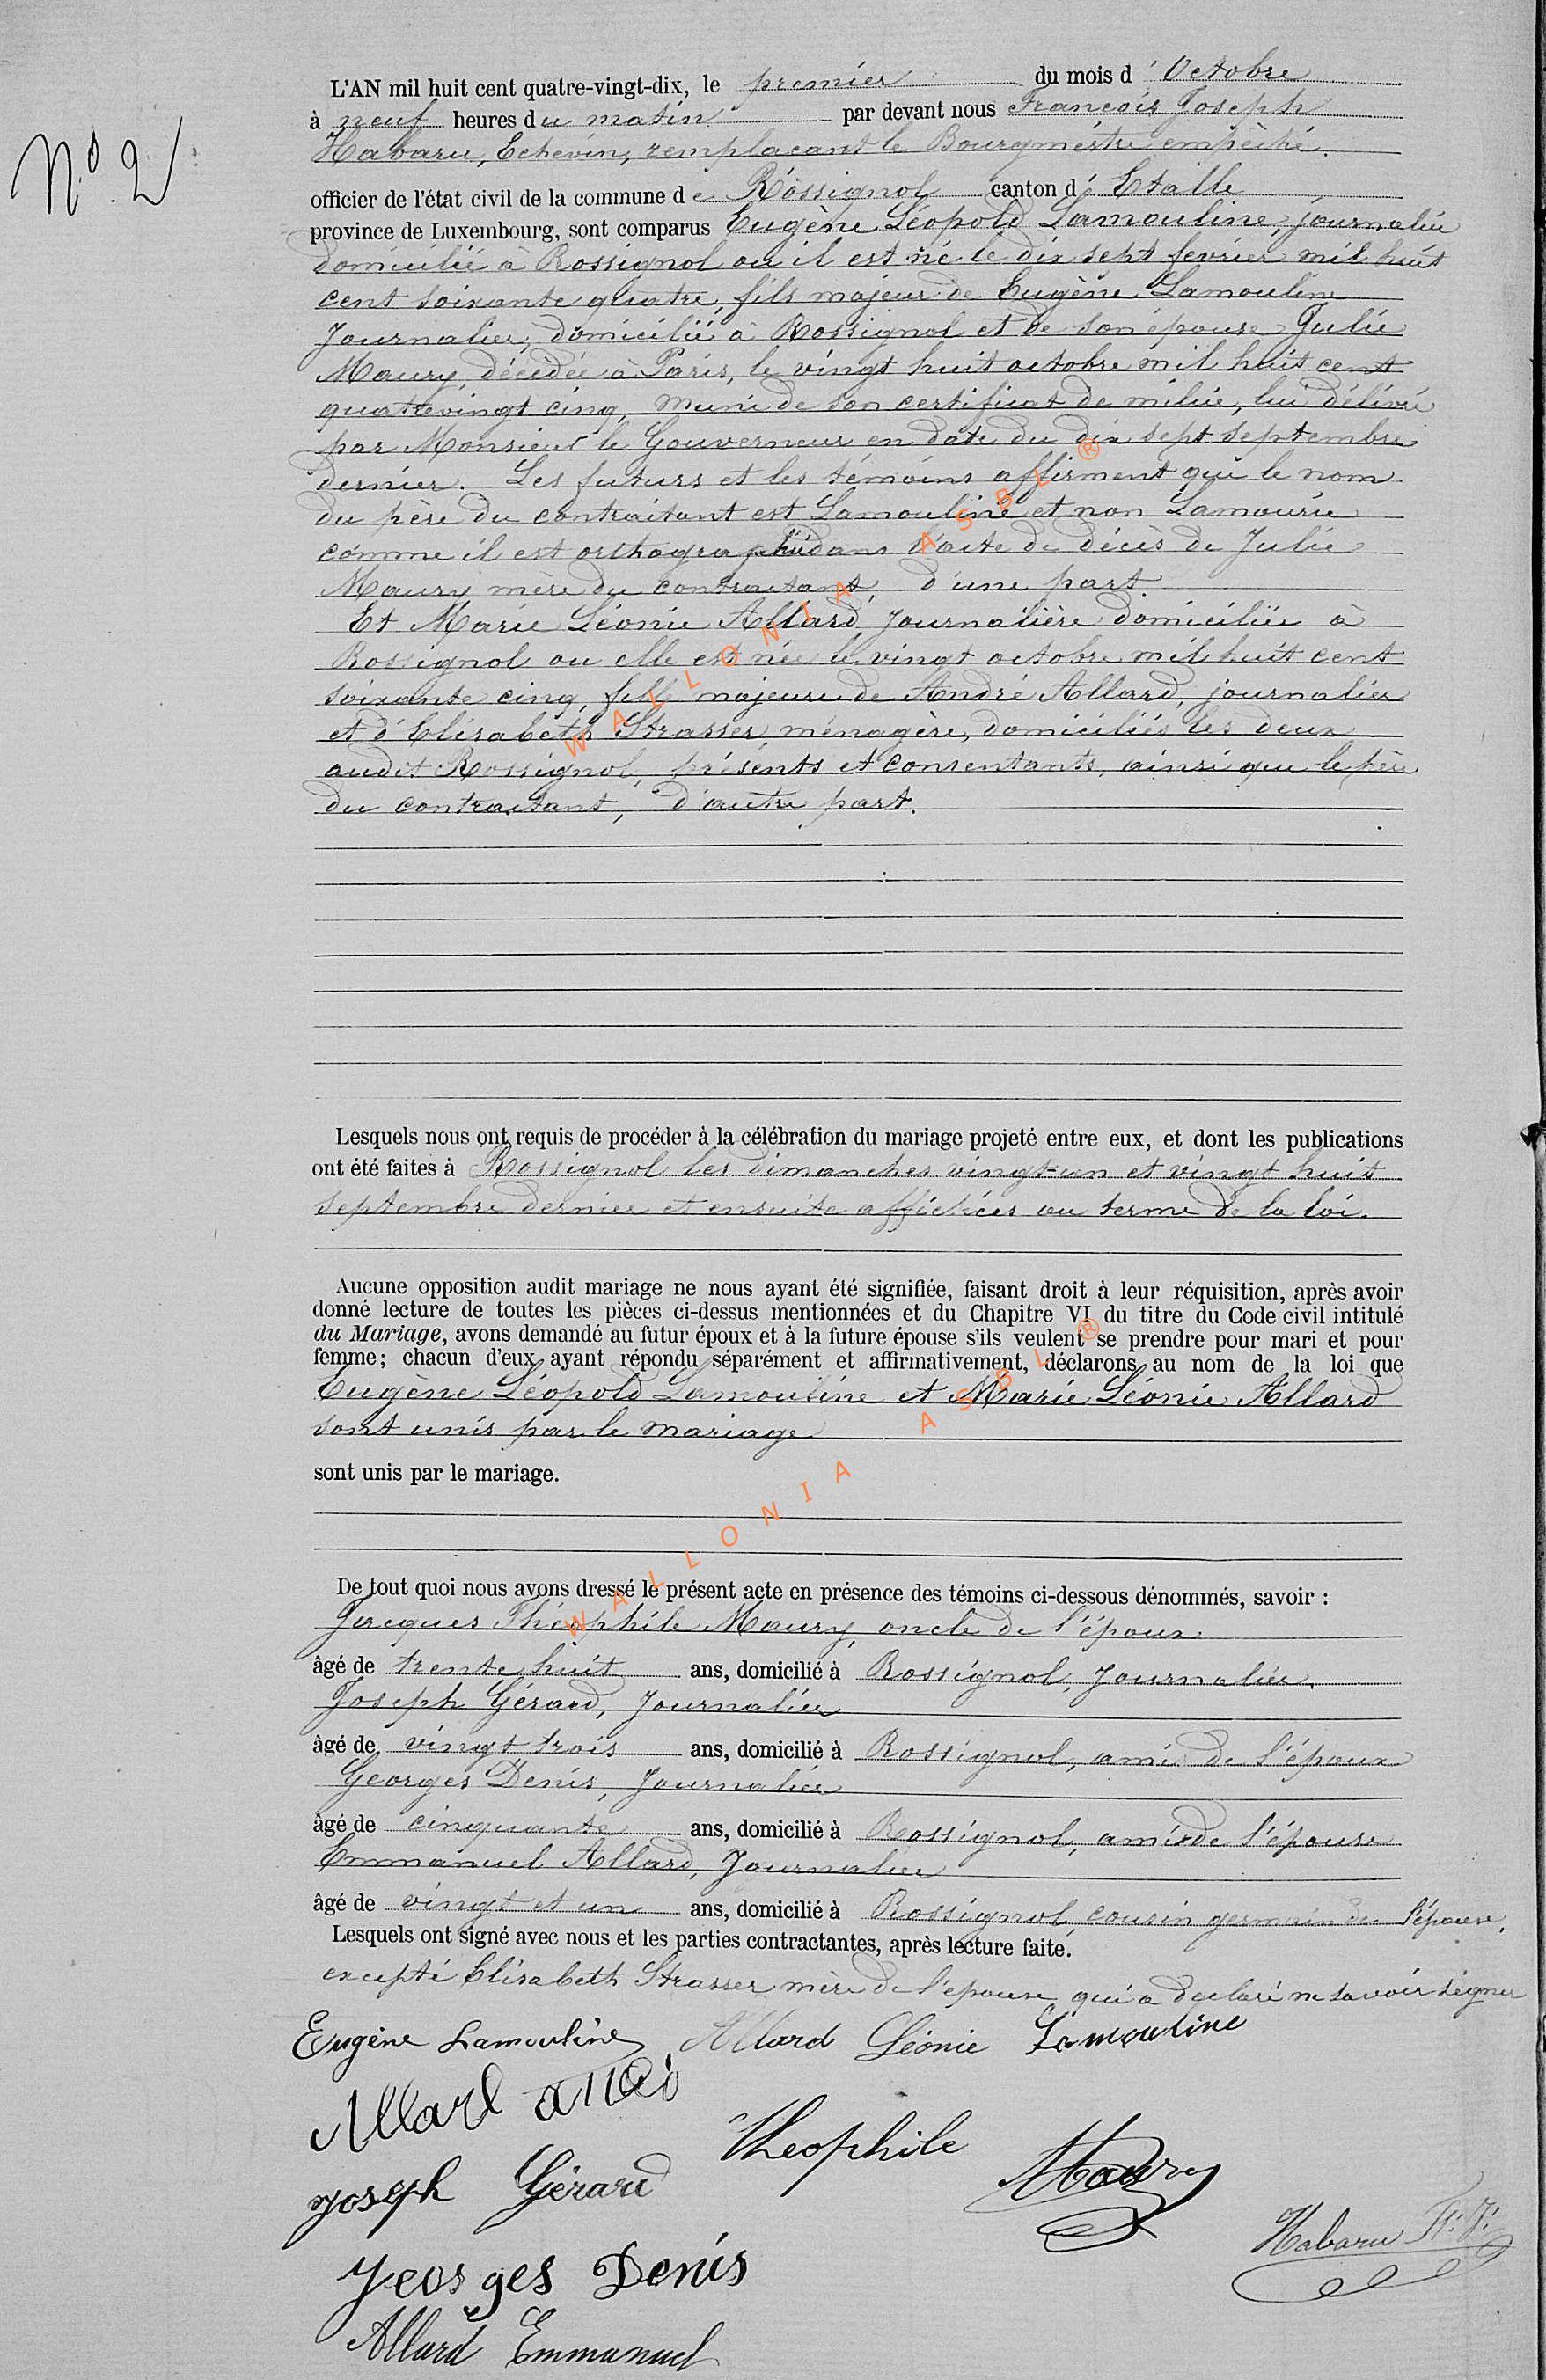 N.o 2
L'AN mil huit cent quatre-vingt-dix, le premier du mois d' Octobre
à neuf heures du matin par devant nous François Joseph
Habaru, Echevin, remplaçant le Bourgmestre empêché.
officier de l'état civil de la commune de Rossignol canton d' Etalle
province de Luxembourg, sont comparus Eugène Léopold Lamouline, journalier
domicilié à Rossignol ou il est né le dix sept fevrier mil huit
cent soixante quatre, fils majeur de Eugène Lamouline
Journalier, domicilié à Rossignol et de son épouse Julie
Maury, décédée à Paris, le vingt huit octobre mil huit cent
quatrevingt cinq, muni de son certificat de milice, lui délivré
par Monsieur le Gouverneur en date du dix sept septembre
dernier. Les futurs et les témoins affirment que le nom
du père du contractant est Lamouline et non Lamourie
comme il est orthographié dans l'acte de décès de Julie
Maury mère du contractant, d'une part.
Et Marie Léonie Allard journalière domiciliée à
Rossignol ou elle est née le vingt octobre mil huit cent
soixante cinq, fille majeure de André Allard, journalier
et d'Elisabeth Strasser, ménagère, domiciliés les deux
audit Rossignol, présents et consentants, ainsi que le père
du contractant, d'autre part.
Lesquels nous ont requis de procéder à la célébration du mariage projeté entre eux, et dont les publications
ont été faites à Rossignol les dimanches vingt-un et vingt huit
septembre dernier et ensuite affichées au terme de la loi.
Aucune opposition audit mariage ne nous ayant été signifiée, faisant droit à leur réquisition, après avoir
donné lecture de toutes les pièces ci-dessus mentionnées et du Chapitre VI du titre du Code civil intitulé
du Mariage, avons demandé au futur époux et à la future épouse s'ils veulent se prendre pour mari et pour
femme; chacun d'eux ayant répondu séparément et affirmativement, déclarons au nom de la loi que
Eugène Léopold Lamouline et Marie Léonie Allard
sont unis par le mariage
sont unis par le mariage.
De tout quoi nous avons dressé le présent acte en présence des témoins ci-dessous dénommés, savoir :
Jacques Théophile Maury, oncle de l'époux
âgé de trente huit ans, domicilié à Rossignol, Journalier.
Joseph Gérard, Journalier
âgé de vingt trois ans, domicilié à Rossignol, ami de l'époux
Georges Denis, Journalier
âgé de cinquante ans, domicilié à Rossignol, ami de l'épouse
Emmanuel Allard, Journalier
âgé de vingt et un ans, domicilié à Rossignol, cousin germain de l'épouse.
Lesquels ont signé avec nous et les parties contractantes, après lecture faite.
excepté Elisabeth Strasser mère de l'épouse qui a declaré ne savoir signer
Eugène Lamouline Allard Léonie Lamouline
Allard
Theophile Maury
Joseph Gérard
Habaru F. J.
Georges Denis
Allard Emmanuel
WALLONIA ASBL ®
WALLONIA ASBL ®